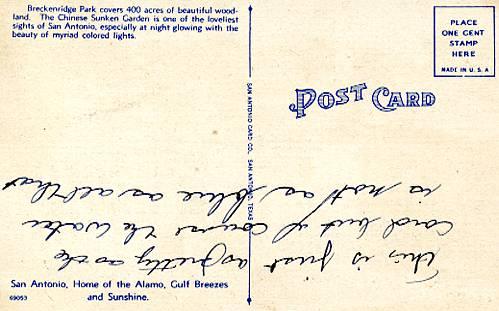 Breckenridge Park covers 400 acres of beautiful wood-
land. The Chinese Sunken Garden is one of the loveliest
sights of San Antonio, especially at night glowing with the
beauty of myriad colored lights.
PLACE
ONE CENT
STAMP
HERE
MADE IN U.S.A
POST CARD
SAN ANTONIO CARD CO., SAN ANTONIO, TEXAS
This is just as pretty as the
card but of course the water
is not as blue as all that
San Antonio, Home of the Alamo, Gulf Breezes
and Sunshine.
69053